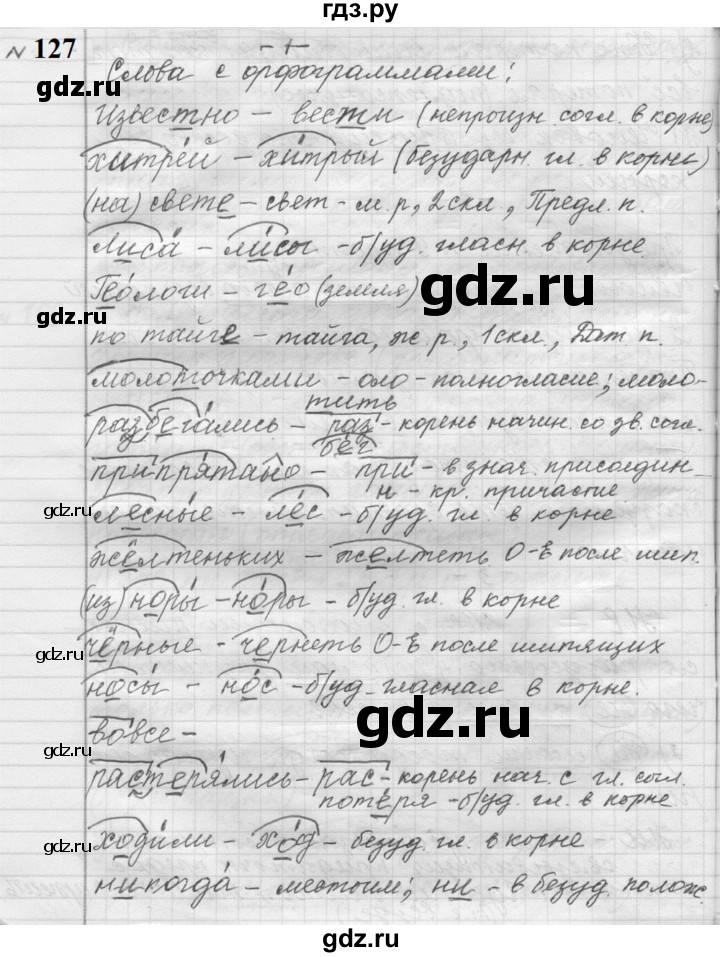 гдз.ру
№ 127
Слова с орфограммами:
Известно – вести (непроизн. согл. в корне)
хитрей – хитрый (безударн. гл. в корне)
(на) свете – свет – м. р., 2 скл., Предл. п.
Лиса́ – ли́сы – б/уд. гласн. в корне
Гео́логи – ге́о (земля)
по тайге – тайга, ж. р., 1 скл., Дат. п.
молоточками – оло – полногласие; моло-
тить
разбега́лись – раз – корень начин. со зв. согл.
бег
припрятано – при – в знач. присоедин.
н – кр. причастие
лесны́е – лес – б/уд. гл. в корне
жёлтеньких – желтеть О-Ё после шип.
(из) норы́ – но́ры – б/уд. гл. в корне
чёрные – чернеть О-Ё после шипящих
носы́ – но́с – б/уд. гласная в корне.
во́все –
растеря́лись – рас – корень нач. с гл. согл.
поте́ря – б/уд. гл. в корне
ходи́ли – хо́д – безуд. гл. в корне –
никогда́ – местоим.; ни – в безуд. полож.
gdz.ru
gdz.ru
gdz.ru
gdz.ru
gdz.ru
gdz.ru
gdz.ru
gdz.ru